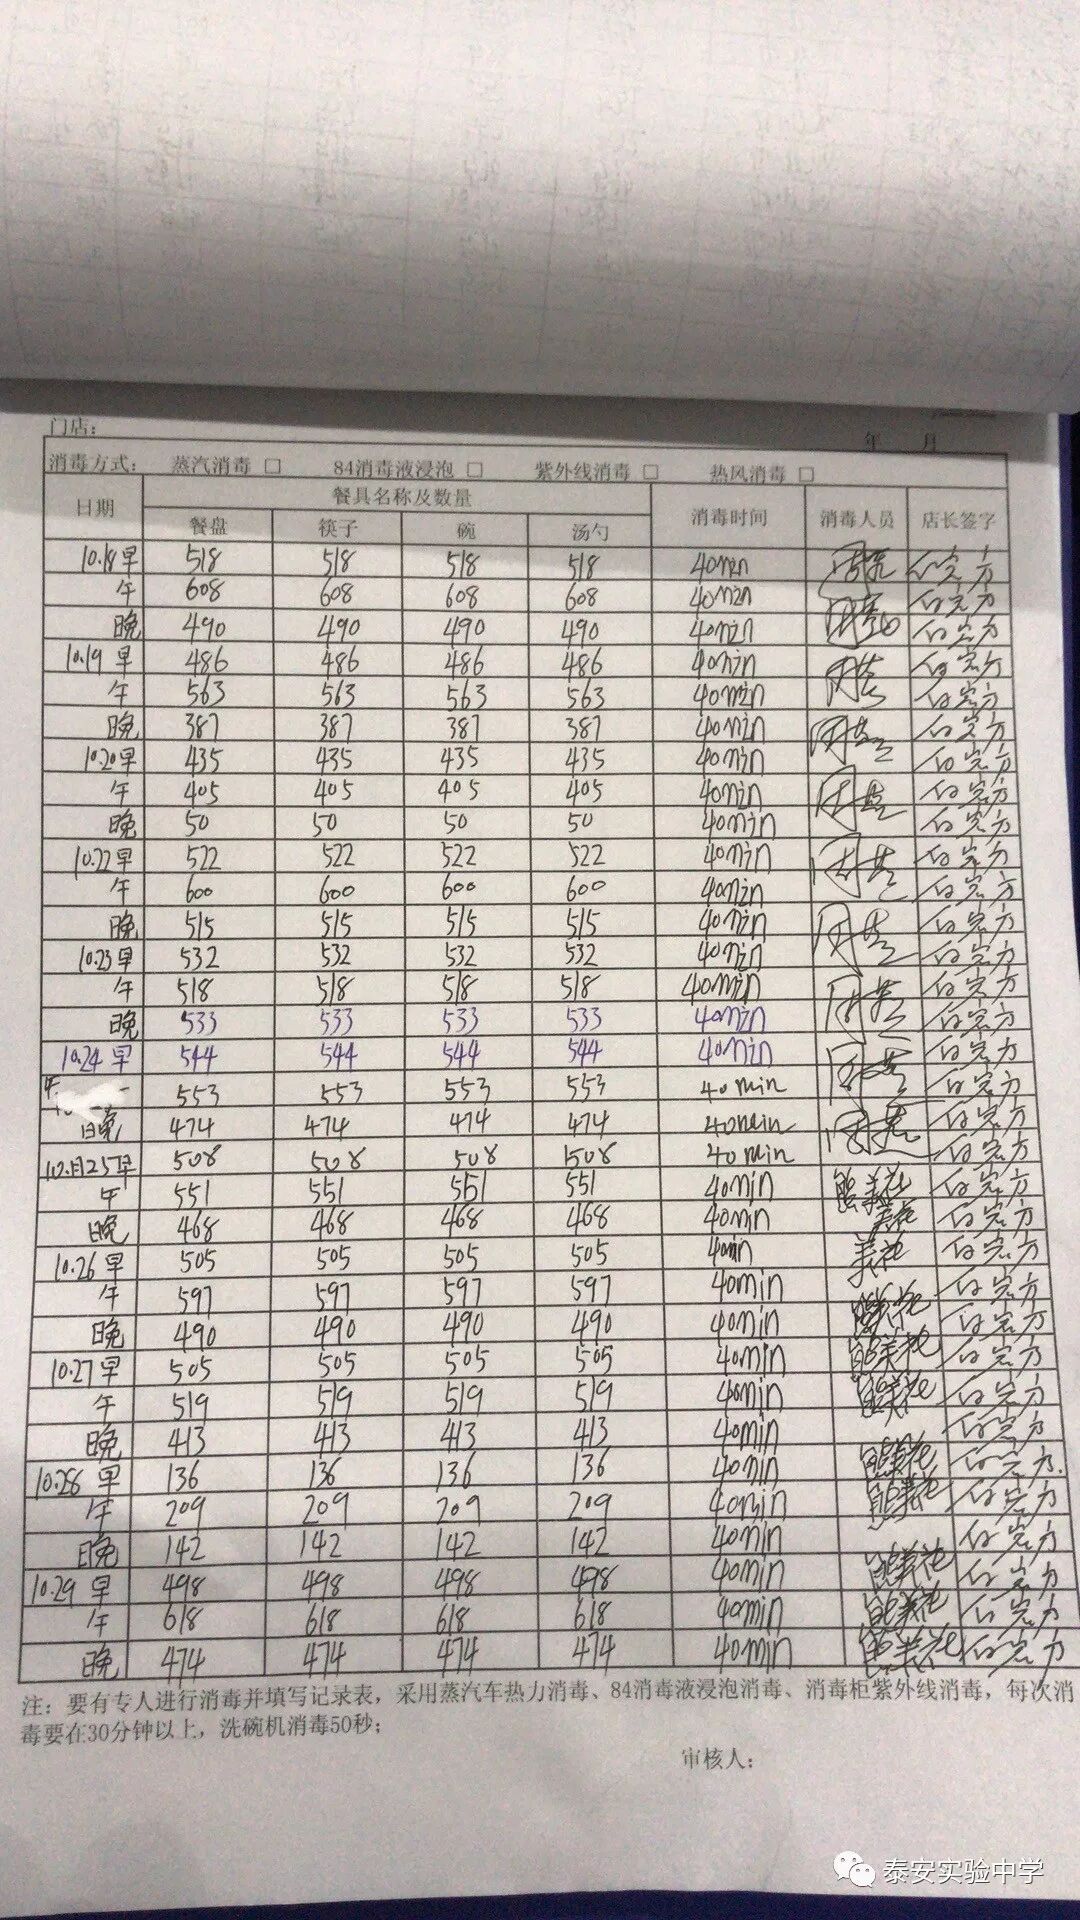 门店： 年 月
消毒方式： 蒸汽消毒 □ 84消毒液浸泡 □ 紫外线消毒 □ 热风消毒 □
日期 餐具名称及数量 消毒时间 消毒人员 店长签字
餐盘 筷子 碗 汤勺
10.18早 518 518 518 518 40min
午 608 608 608 608 40min
晚 490 490 490 490 40min
10.19早 486 486 486 486 40min
午 563 563 563 563 40min
晚 387 387 387 387 40min
10.20早 435 435 435 435 40min
午 405 405 405 405 40min
晚 50 50 50 50 40min
10.22早 522 522 522 522 40min
午 600 600 600 600 40min
晚 515 515 515 515 40min
10.23早 532 532 532 532 40min
午 518 518 518 518 40min
晚 533 533 533 533 40min
10.24早 544 544 544 544 40min
午 553 553 553 553 40min
晚 474 474 474 474 40min
10.月25早 508 508 508 508 40min
午 551 551 551 551 40min 熊美花
晚 468 468 468 468 40min 美花
10.26早 505 505 505 505 40min 美花
午 597 597 597 597 40min
晚 490 490 490 490 40min 熊美花
10.27早 505 505 505 505 40min 熊美花
午 519 519 519 519 40min 熊美花
晚 413 413 413 413 40min
10.28早 136 136 136 136 40min 熊美花
午 209 209 209 209 40min 熊美花
晚 142 142 142 142 40min
10.29早 498 498 498 498 40min 熊美花
午 618 618 618 618 40min 熊美花
晚 474 474 474 474 40min 熊美花
注：要有专人进行消毒并填写记录表，采用蒸汽车热力消毒、84消毒液浸泡消毒、消毒柜紫外线消毒，每次消
毒要在30分钟以上，洗碗机消毒50秒；
审核人：
泰安实验中学